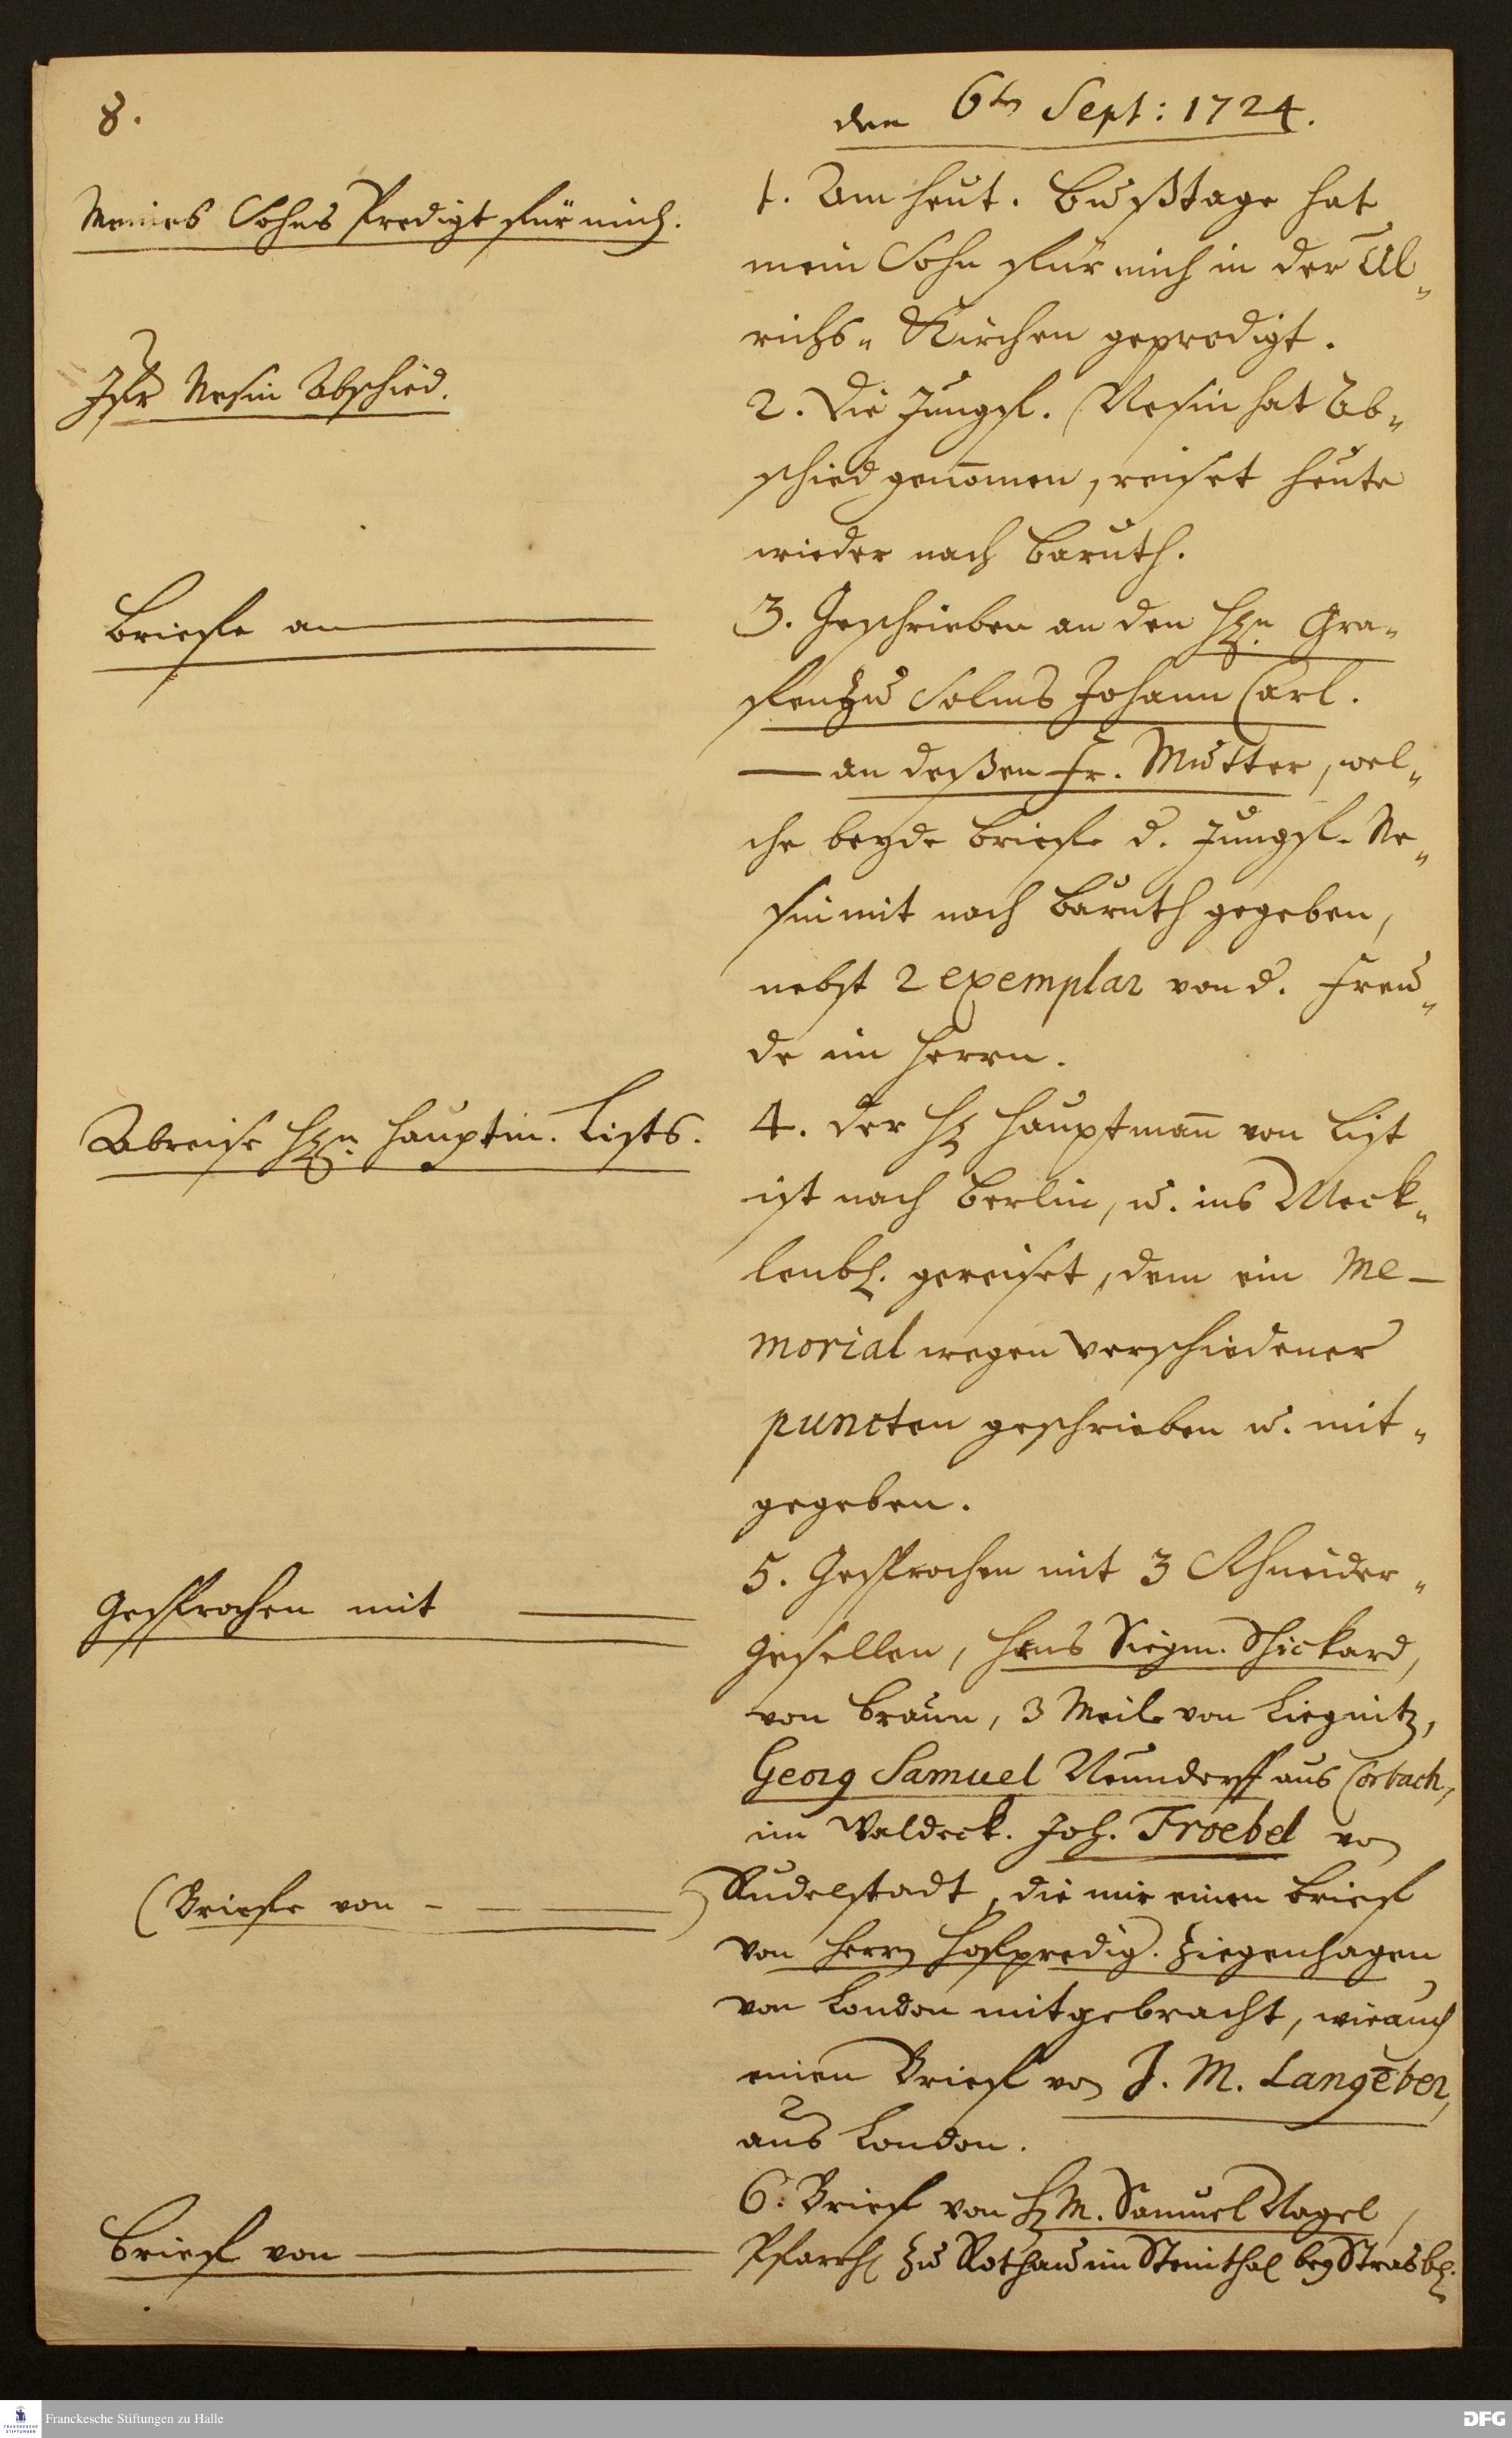 8.
den 6ten Sept: 1724.
Meines Sohns Predigt für mich.
1. Am heut. Bußtage hat
mein Sohn für mich in der Ul„
richs„ Kirchen geprediget.
Jfr Nesin Abschied.
2. Die Jungf. Nesin hat Ab„
schied genommen, reiset heute
wieder nach Baruth.
Briefe an
3. Geschrieben an den Hℓn Gra„
fen zu Solms Johann Carl.
— an deßen Fr. Mutter, wel„
che beyde briefe d. Jungf. Ne„
sin mit nach Baruth gegeben,
nebst 2 exemplar von d. Freu„
de im Herrn.
Abreise Hℓn. Hauptm. Lists.
4. der Hℓ Hauptman̄ von List
ist nach Berlin, u. ins Meck„
lenbl. gereiset, dem ein Me–
morial wegen verschiedener
puncten geschrieben u. mit„
gegeben.
Gesprochen mit
5. Gesprochen mit 3 Schneider„
gesellen, Hans Siegm. Schickard,
von Braun, 3 Meile von Liegnitz,
Georg Samuel Neundorff aus Corbach,
im Waldeck. Joh. Froebel von
(Briefe von - — —)
Rudelstadt, die mir einen brief
von Herrn Hofpredig. Ziegenhagen
von London mitgebracht, wie auch
einen Brief von J. M. Langeber,
aus London.
Brief von
6. Brief von Hℓ M. Samuel Nagel,
Pfarrh zu Rothau im Steinthal bey Strasbℓ.
Franckesche Stiftungen zu Halle
DFG
FRANCKESCHE
STIFTUNGEN